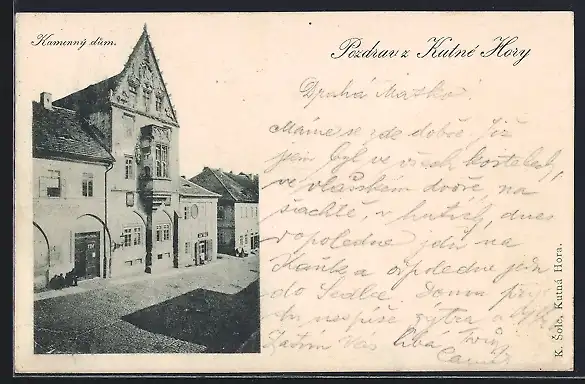 Kamenný dům.
Pozdrav z Kutné Hory
Drahá Matko!
Máme se zde dobře. Již
jsem byl ve všech kostelech,
ve vlašském dvoře, na
šachtě, v hutích, dnes
dopoledne jdu na
Kaňk a odpoledne
do Sedlce. Domu
nejspíše zýtra
Zatím Vás líbá Tvůj
K. Šolc, Kutná Hora.